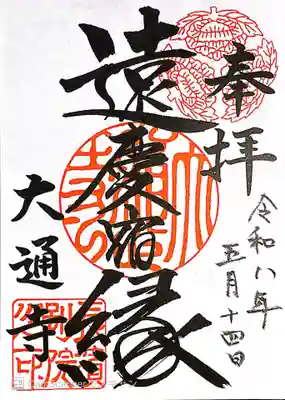 奉拝
令和八年
五月十四日
遠慶宿縁
大通寺
長濱
別院